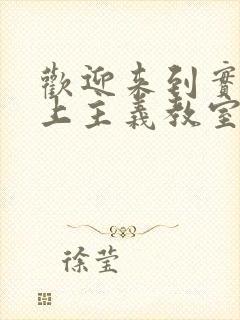 歡迎來到實
上主義教室
徐莹